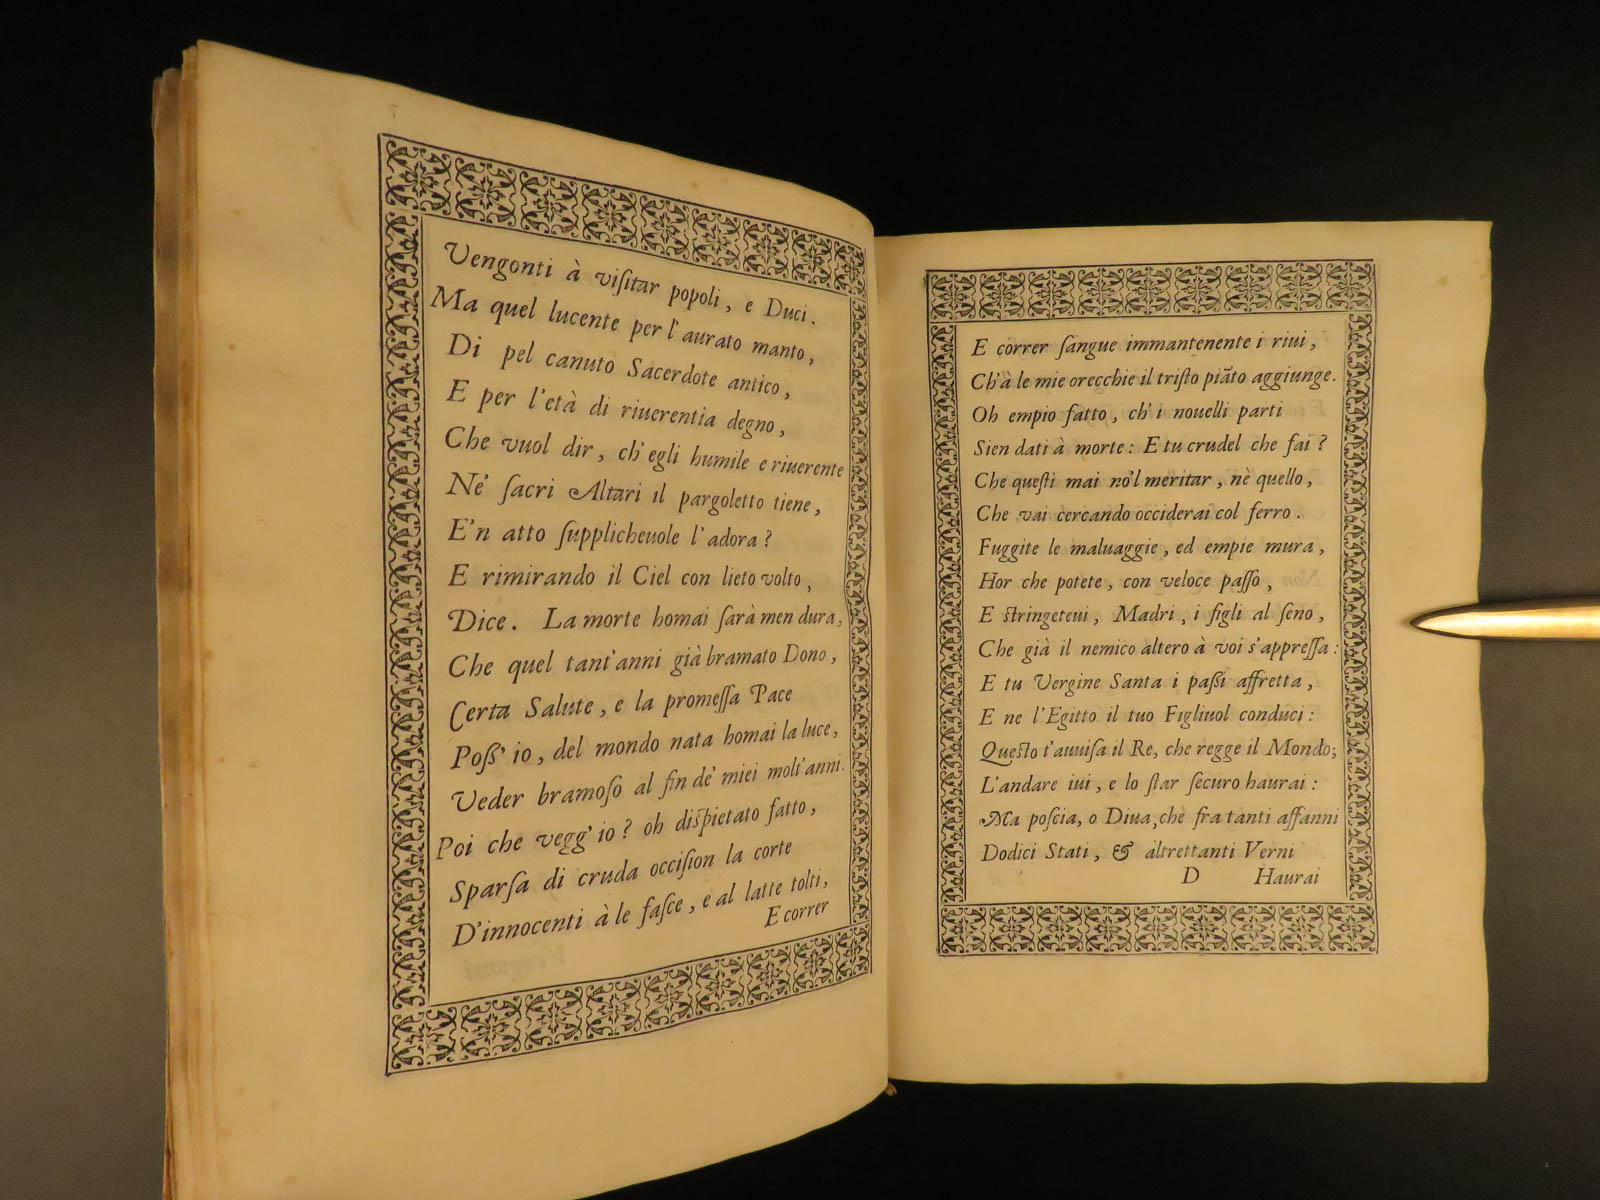 Vengonti à viſitar popoli, e Duci.
Ma quel lucente per l'aurato manto,
Di pel canuto Sacerdote antico,
E per l'età di riuerentia degno,
Che vuol dir, ch'egli humile e riuerente
Ne' ſacri Altari il pargoletto tiene,
E'n atto ſupplicheuole l'adora?
E rimirando il Ciel con lieto volto,
Dice. La morte homai ſarà men dura,
Che quel tant'anni già bramato Dono,
Certa Salute, e la promeſſa Pace
Poſſ'io, del mondo nata homai la luce,
Veder bramoſo al fin de' miei molt'anni.
Poi che vegg'io? oh diſpietato fatto,
Sparſa di cruda occiſion la corte
D'innocenti à le faſce, e al latte tolti,
E correr
E correr ſangue immantenente i riui,
Ch'à le mie orecchie il triſto piãto aggiunge.
Oh empio fatto, ch'i nouelli parti
Sien dati à morte: E tu crudel che fai?
Che queſti mai nō'l meritar, nè quello,
Che vai cercando occiderai col ferro.
Fuggite le maluaggie, ed empie mura,
Hor che potete, con veloce paſſo,
E ſtringeteui, Madri, i figli al ſeno,
Che già il nemico altero à voi s'appreſſa:
E tu Vergine Santa i paſſi affretta,
E ne l'Egitto il tuo Figliuol conduci:
Queſto t'auuiſa il Re, che regge il Mondo;
L'andare iui, e lo ſtar ſecuro haurai:
Ma poſcia, o Diua, che fra tanti affanni
Dodici Stati, & altrettanti Verni
D Haurai